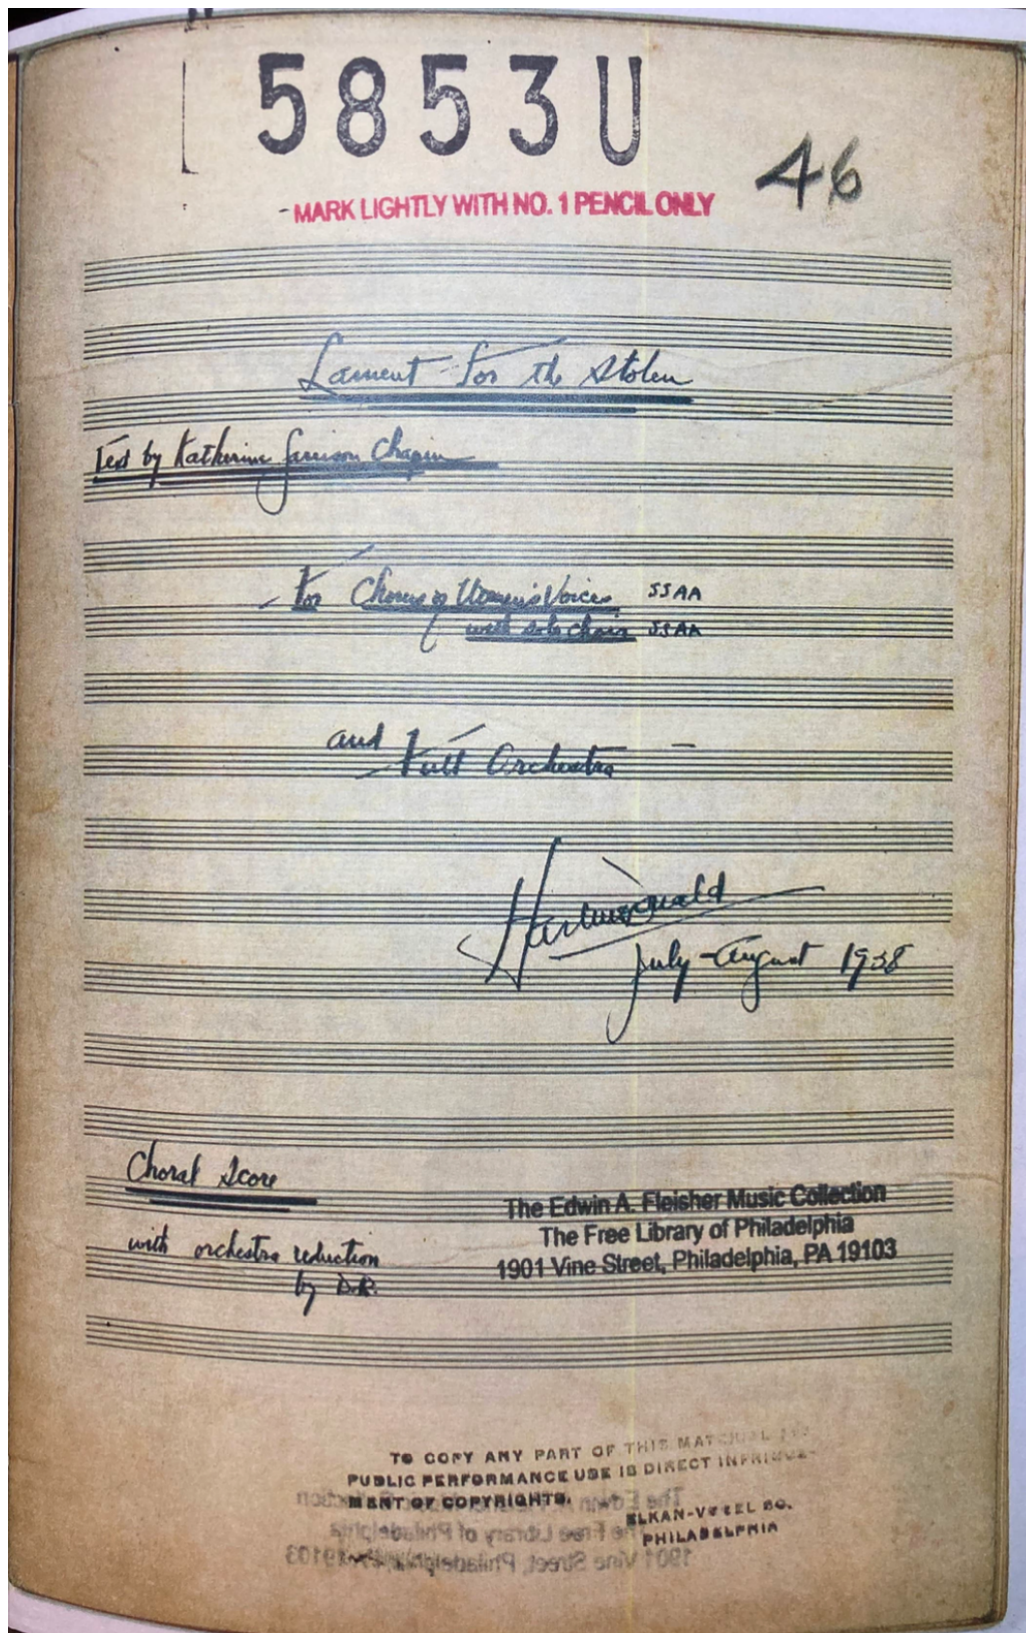 5853U
46
- MARK LIGHTLY WITH NO. 1 PENCIL ONLY
Lament for the Stolen
Text by Katherine Garrison Chapin
for Chorus of Women's Voices SSAA
with solo choir SSAA
and Full Orchestra
Harl McDonald
July-August 1938
Choral Score
with orchestra reduction
by D.R.
The Edwin A. Fleisher Music Collection
The Free Library of Philadelphia
1901 Vine Street, Philadelphia, PA 19103
TO COPY ANY PART OF THIS MATERIAL
PUBLIC PERFORMANCE USE IS DIRECT INFRINGE-
MENT OF COPYRIGHTS.
ELKAN-VOGEL CO.
PHILADELPHIA
The Edwin A. Fleisher Music Collection
The Free Library of Philadelphia
1901 Vine Street, Philadelphia, PA 19103